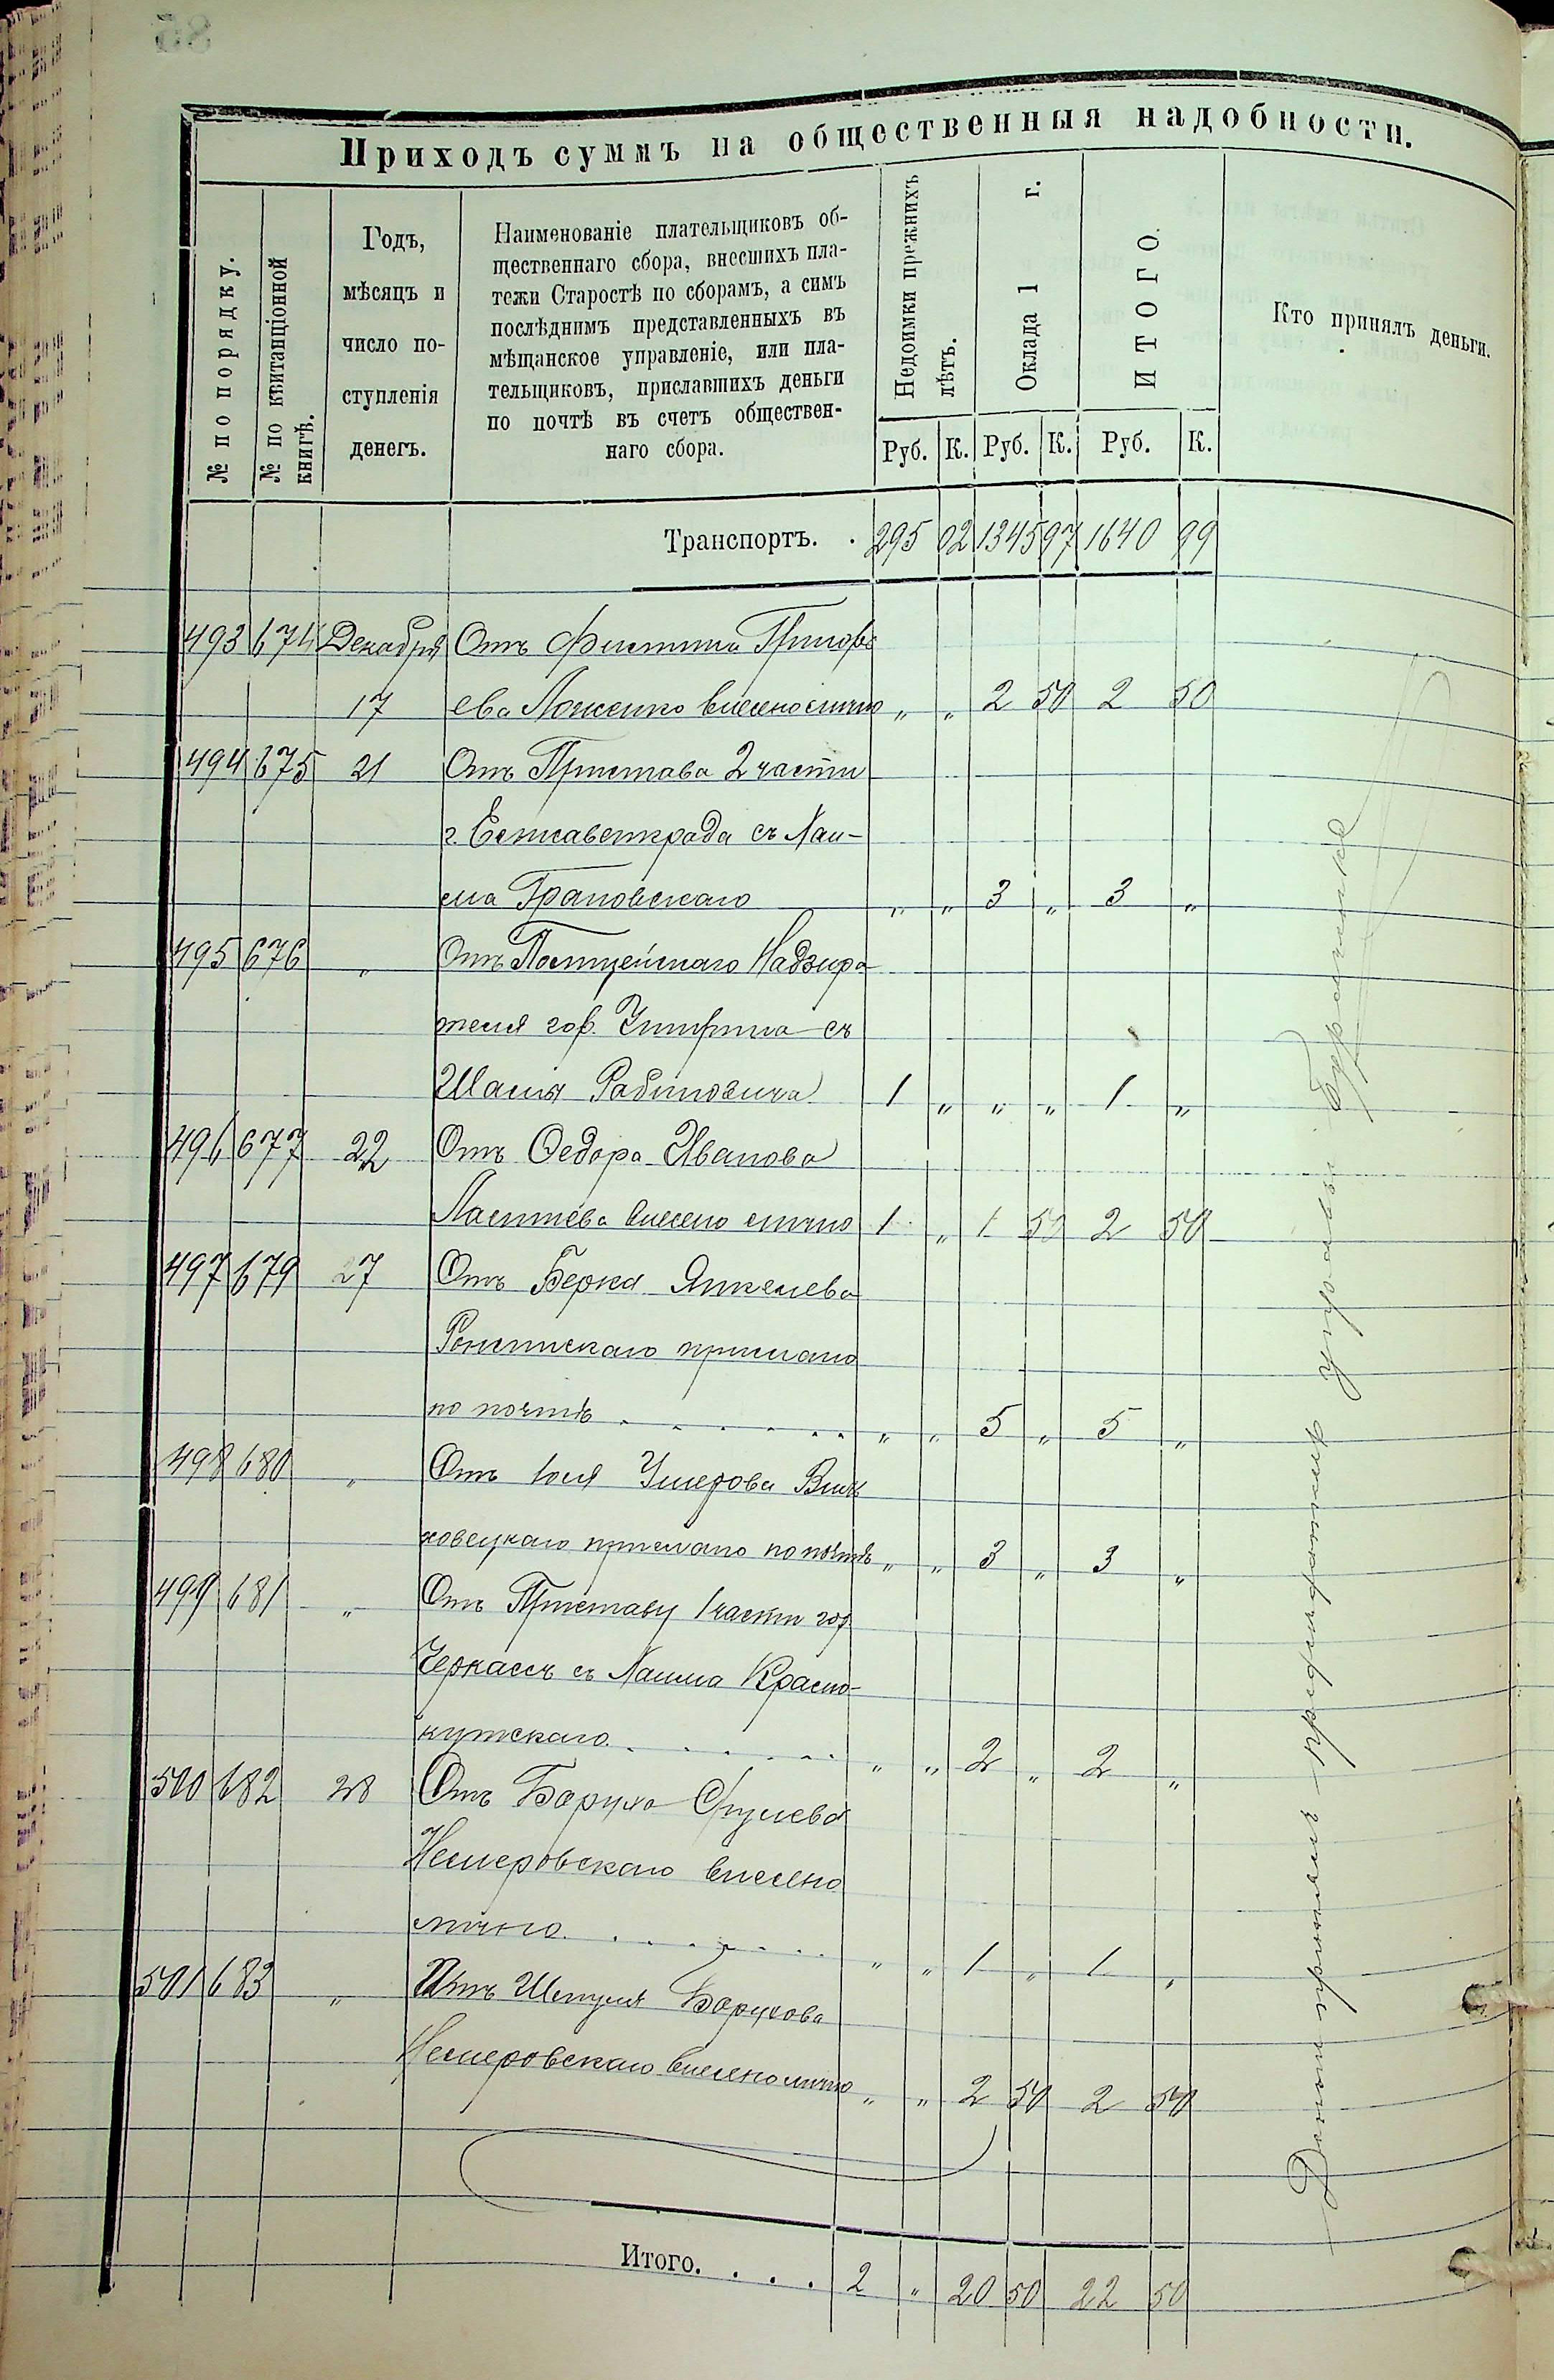 Приходъ суммъ на общественныя надобности.
№ по порядку.
№ по квитанціонной книгѣ.
Годъ,
мѣсяцъ и
число по-
ступленія
денегъ.
Наименованіе плательщиковъ об-
щественнаго сбора, внесшихъ пла-
тежи Старостѣ по сборамъ, а симъ
послѣднимъ представленныхъ въ
мѣщанское управленіе, или пла-
тельщиковъ, приславшихъ деньги
по почтѣ въ счетъ обществен-
наго сбора.
Недоимки прежнихъ лѣтъ.
Оклада 1 г.
ИТОГО.
Кто принялъ деньги.
Руб. К. Руб. К. Руб. К.
Транспортъ. . 295 02 1345 97 1640 99
493 674 Декабря Отъ Григорь
17 ева внесено лично „ „ 2 50 2 50
494 675 21 Отъ Пристава 2 части
г. Елисаветграда съ Хаи-
ма Грановскаго „ „ 3 „ 3 „
495 676 „ Отъ Полицейскаго Надзира
теля гор. Чигирина съ
Рабиновича 1 „ „ „ 1 „
496 677 22 Отъ Федора Иванова
внесено лично 1 „ 1 50 2 50
497 679 27 Отъ Берка Янкелева
прислано
по почтѣ . . . . . . „ „ 5 „ 5 „
498 680 „ Отъ
ховецкаго прислано по почтѣ „ „ 3 „ 3 „
499 681 „ Отъ Приставу 1 части гор
Черкассъ съ Хаима Красно-
кутскаго . . . . . . „ „ 2 „ 2 „
500 682 28 Отъ Боруха Сруллева
Немеровскаго внесено
лично . . . . . . „ „ 1 „ 1 „
501 683 „ Отъ Шмуля Борухова
Немеровскаго внесено лично „ „ 2 50 2 50
Итого. . . . 2 „ 20 50 22 50
Деньги принялъ управы